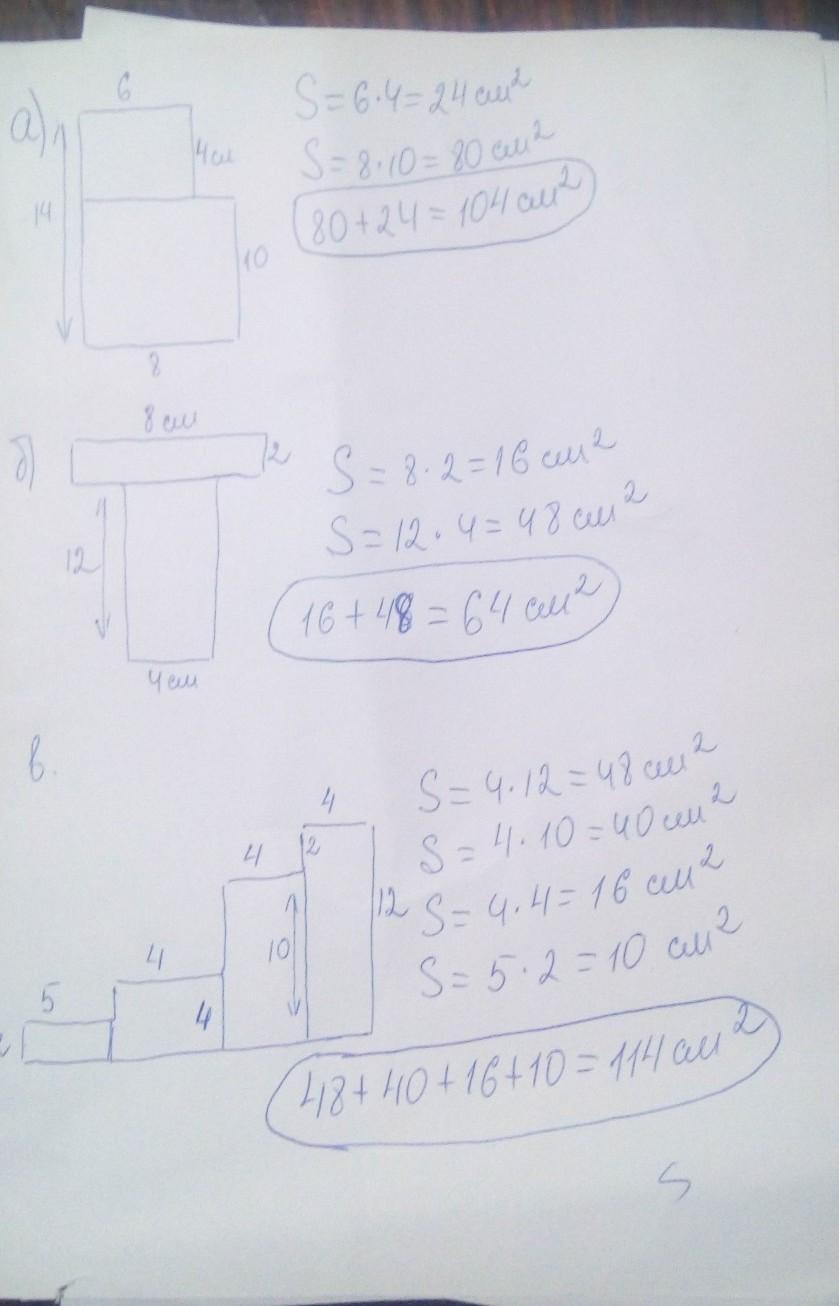 а)
6
4см
14
10
8
S = 6·4 = 24 см²
S = 8·10 = 80 см²
80 + 24 = 104 см²
б)
8 см
2
12
4 см
S = 8·2 = 16 см²
S = 12·4 = 48 см²
16 + 48 = 64 см²
в.
4
4
2
12
10
4
5
4
S = 4·12 = 48 см²
S = 4·10 = 40 см²
S = 4·4 = 16 см²
S = 5·2 = 10 см²
48 + 40 + 16 + 10 = 114 см²
S